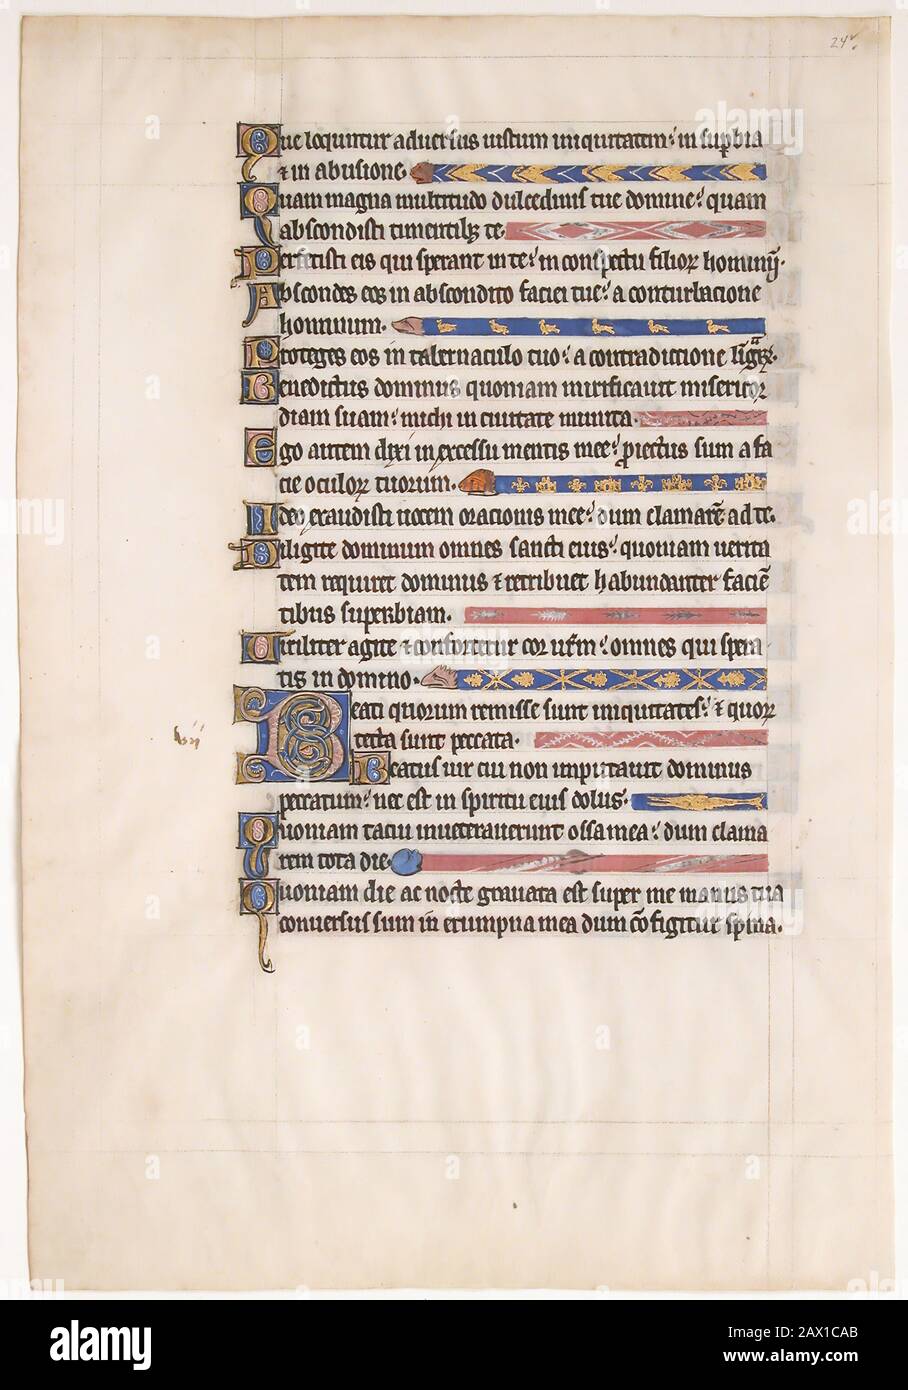 24v.
Que loquntur aduersus iustum iniquitatem: in supbia
⁊ in abusione.
Quam magna multitudo dulcedinis tue domine: quam
abscondisti timentibꝫ te.
Perfecisti eis qui sperant in te: in conspectu filioꝝ hominū.
Abscondes eos in abscondito faciei tue: a conturbacione
hominum.
Proteges eos in tabernaculo tuo: a contradictione
Benedictus dominus quoniam mirificauit misericor
diam suam: michi in ciuitate munita.
Ego autem dixi in excessu mentis mee: proiectus sum a fa
cie oculoꝝ tuorum.
Ideo exaudisti uocem oracionis mee: dum clamarē ad te.
Diligite dominum omnes sancti eius: quoniam uerita
tem requiret dominus ⁊ retribuet habundanter faciē
tibus superbiam.
Uiriliter agite ⁊ confortetur cor ur̄m: omnes qui spera
tis in domino.
Beati quorum remisse sunt iniquitates: ⁊ quoꝝ
tecta sunt peccata.
Beatus uir cui non imputauit dominus
peccatum: nec est in spiritu eius dolus.
Quoniam tacui inueterauerunt ossa mea: dum clama
rem tota die.
Quoniam die ac nocte grauata est super me manus tua
conuersus sum in erumpna mea dum cōfigitur spina.
alamy
Image ID: 2AX1CAB
www.alamy.com